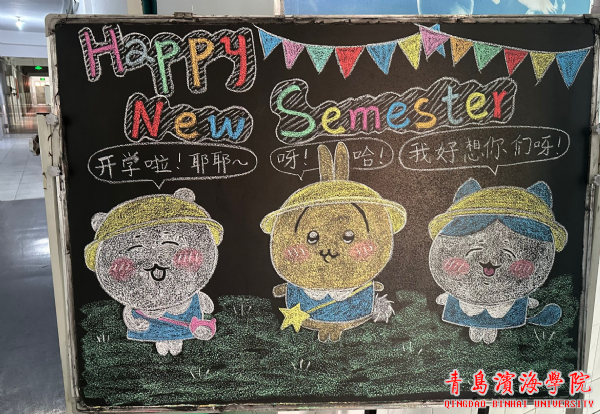 Happy
New Semester
开学啦！耶耶~
呀！哈！
我好想你们呀！
青島濱海學院
QINGDAO BINHAI UNIVERSITY